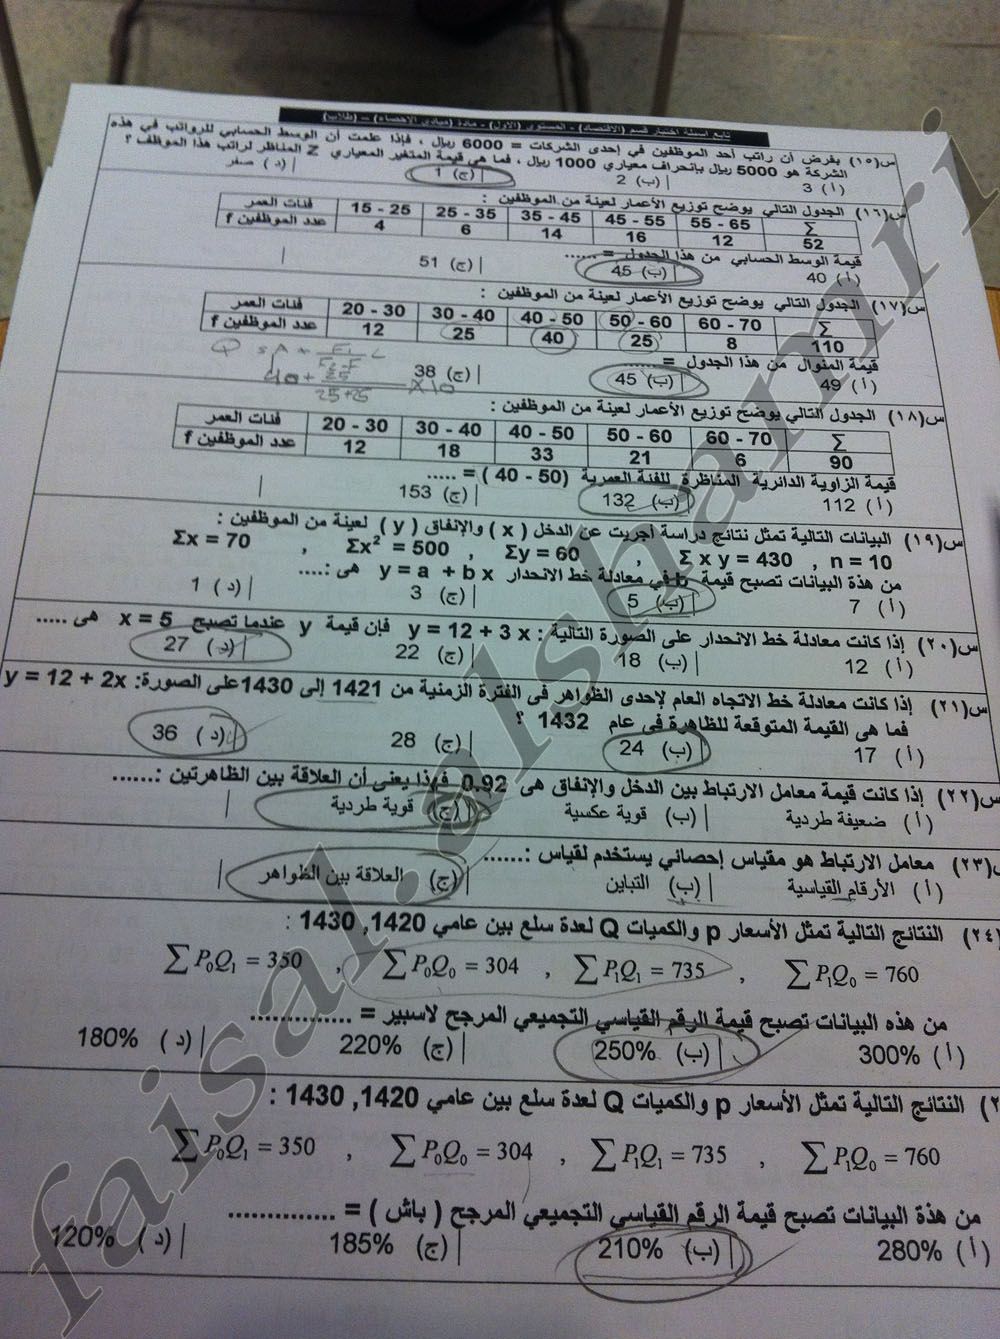 تابع اسئلة اختبار قسم (الاقتصاد) - المستوى (الاول) - مادة (مبادئ الإحصاء) – (طلاب)
س(١٥) بفرض أن راتب أحد الموظفين في إحدى الشركات = 6000 ريال ، فإذا علمت أن الوسط الحسابي للرواتب في هذه
الشركة هو 5000 ريال بإنحراف معياري 1000 ريال ، فما هي قيمة المتغير المعياري Z المناظر لراتب هذا الموظف ؟
(أ) 3 (ب) 2 (ج) 1 (د) صفر
س(١٦) الجدول التالي يوضح توزيع الأعمار لعينة من الموظفين :
فئات العمر 15 - 25 25 - 35 35 - 45 45 - 55 55 - 65 Σ
عدد الموظفين f 4 6 14 16 12 52
قيمة الوسط الحسابي من هذا الجدول = ......
(أ) 40 (ب) 45 (ج) 51
س(١٧) الجدول التالي يوضح توزيع الأعمار لعينة من الموظفين :
فئات العمر 20 - 30 30 - 40 40 - 50 50 - 60 60 - 70 Σ
عدد الموظفين f 12 25 40 25 8 110
قيمة المنوال من هذا الجدول = ......
(أ) 49 (ب) 45 (ج) 38
س(١٨) الجدول التالي يوضح توزيع الأعمار لعينة من الموظفين :
فئات العمر 20 - 30 30 - 40 40 - 50 50 - 60 60 - 70 Σ
عدد الموظفين f 12 18 33 21 6 90
قيمة الزاوية الدائرية المناظرة للفئة العمرية (50 - 40) = .....
(أ) 112 (ب) 132 (ج) 153
س(١٩) البيانات التالية تمثل نتائج دراسة أجريت عن الدخل ( x ) والإنفاق ( y ) لعينة من الموظفين :
Σx = 70 , Σx² = 500 , Σy = 60 , Σ x y = 430 , n = 10
من هذة البيانات تصبح قيمة b في معادلة خط الانحدار y = a + b x هى :....
(أ) 7 (ب) 5 (ج) 3 (د) 1
س(٢٠) إذا كانت معادلة خط الانحدار على الصورة التالية : y = 12 + 3 x فإن قيمة y عندما تصبح x = 5 هى .....
(أ) 12 (ب) 18 (ج) 22 (د) 27
س(٢١) إذا كانت معادلة خط الاتجاه العام لإحدى الظواهر فى الفترة الزمنية من 1421 إلى 1430 على الصورة: y = 12 + 2x
فما هى القيمة المتوقعة للظاهرة فى عام 1432 ؟
(أ) 17 (ب) 24 (ج) 28 (د) 36
س(٢٢) إذا كانت قيمة معامل الارتباط بين الدخل والإنفاق هى 0.92 فهذا يعنى أن العلاقة بين الظاهرتين :......
(أ) ضعيفة طردية (ب) قوية عكسية (ج) قوية طردية
(٢٣) معامل الارتباط هو مقياس إحصائي يستخدم لقياس :......
(أ) الأرقام القياسية (ب) التباين (ج) العلاقة بين الظواهر
(٢٤) النتائج التالية تمثل الأسعار p والكميات Q لعدة سلع بين عامي 1420, 1430 :
∑ P₀Q₁ = 350 , ∑ P₀Q₀ = 304 , ∑ P₁Q₁ = 735 , ∑ P₁Q₀ = 760
من هذه البيانات تصبح قيمة الرقم القياسي التجميعي المرجح لاسبير = ..............
(أ) 300% (ب) 250% (ج) 220% (د) 180%
النتائج التالية تمثل الأسعار p والكميات Q لعدة سلع بين عامي 1420, 1430 :
∑ P₀Q₁ = 350 , ∑ P₀Q₀ = 304 , ∑ P₁Q₁ = 735 , ∑ P₁Q₀ = 760
من هذة البيانات تصبح قيمة الرقم القياسي التجميعي المرجح ( باش ) = ..............
(أ) 280% (ب) 210% (ج) 185% (د) 120%
faisal.alshamri